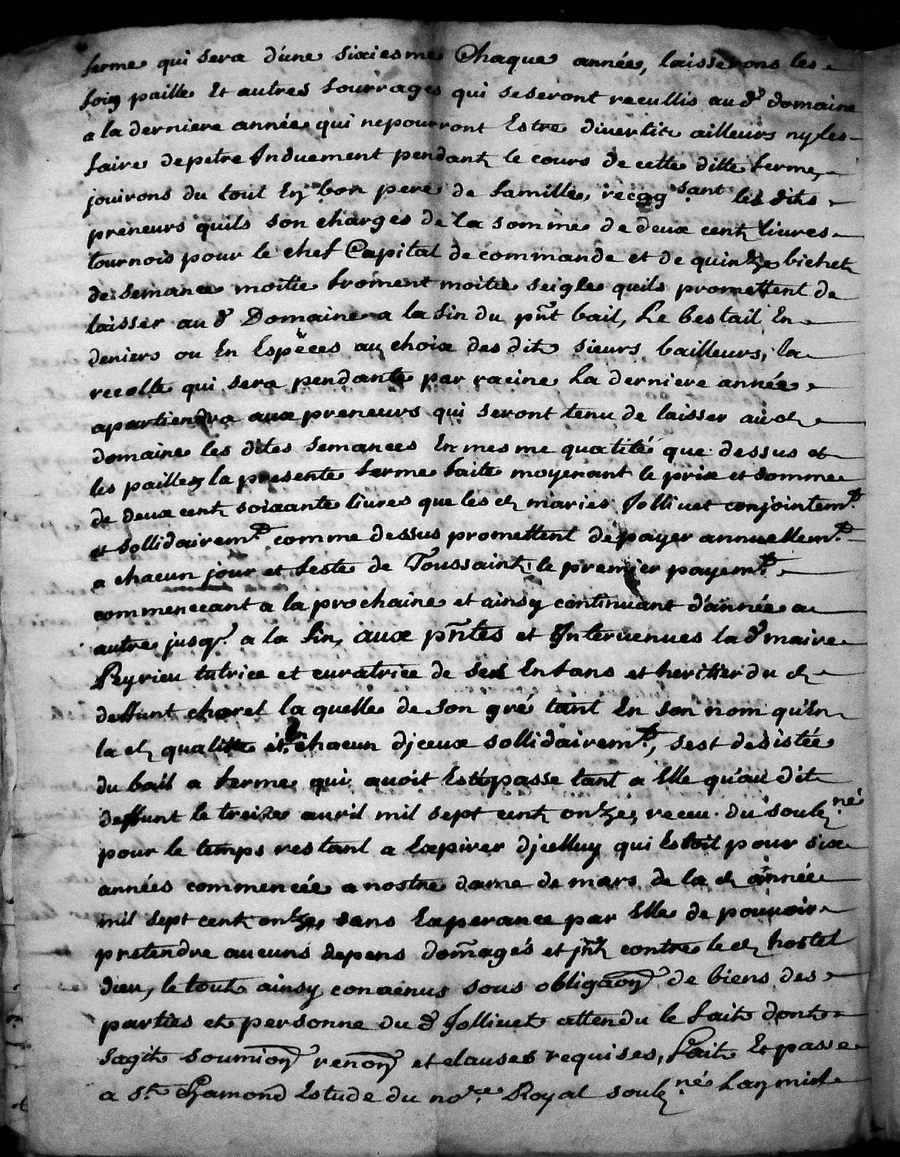 ferme qui sera d'une sixiesme Chaque année, laisserons les
foin paille Et autres fourrages qui se seront recullis au d.t domaine
a la derniere année qui ne pourront Estre divertit ailleurs ny les
faire depetre Induement pendant le cours de cette ditte ferme,
jouirons du tout En bon pere de famille, recog sant les dits
preneurs quils son charges de la somme de deux cent livres
tournois pour le chef Capital de commande et de quinze bichet
de semance moitie froment moitie seigle quils promettent de
laisser au d.t Domaine a la fin du pnt bail, Le bestail En
deniers ou En Espèces au choix des dit sieurs bailleurs, la
recolte qui sera pendante par racine La derniere année
apartiendra aux preneurs qui seront tenu de laisser au d
domaine les dites semances En mesme quatité que dessus et
les pailles, la presente ferme faite moyenant le prix et somme
de deux cent soixante livres que les d maries Jollivet conjointem.t
et sollidairem.t comme dessus promettent de payer annuellem.t
a chacun jour et feste de Toussaint, le premier payem.t
commenceant a la prochaine et ainsy continuant d'année a
autre jusq.' a la fin, aux pntes et Intervenues la d.t maire
Peyrieu tutrice et curatrice de ses Enfans et heritier du d
deffunt charet la quelle de son gré tant En son nom qu'En
la d qualitte et chacun djceux sollidairem.t, sest desistée
du bail a ferme qui avoit Esté passe tant a Elle qu'au dit
deffunt le treize avril mil sept cent onze, receu du soub.né
pour le temps restant a Expirer djcelluy qui Estoit pour six
années commencée a nostre dame de mars de la d année
mil sept cent onze, sans Experance par Elle de pouvoir
pretendre aucuns depens domages et jnt contre le d hostel
dieu, le tout ainsy convenus sous obligaon de biens des
parties et personne du d.t Jollivet attendu le fait dont
sagit soumion renon et clauses requises, Fait Et passe
a St Chamond Estude du no.re Royal soub.né Lan mil